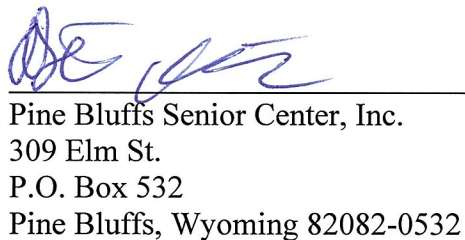 Pine Bluffs Senior Center, Inc.
309 Elm St.
P.O. Box 532
Pine Bluffs, Wyoming 82082-0532